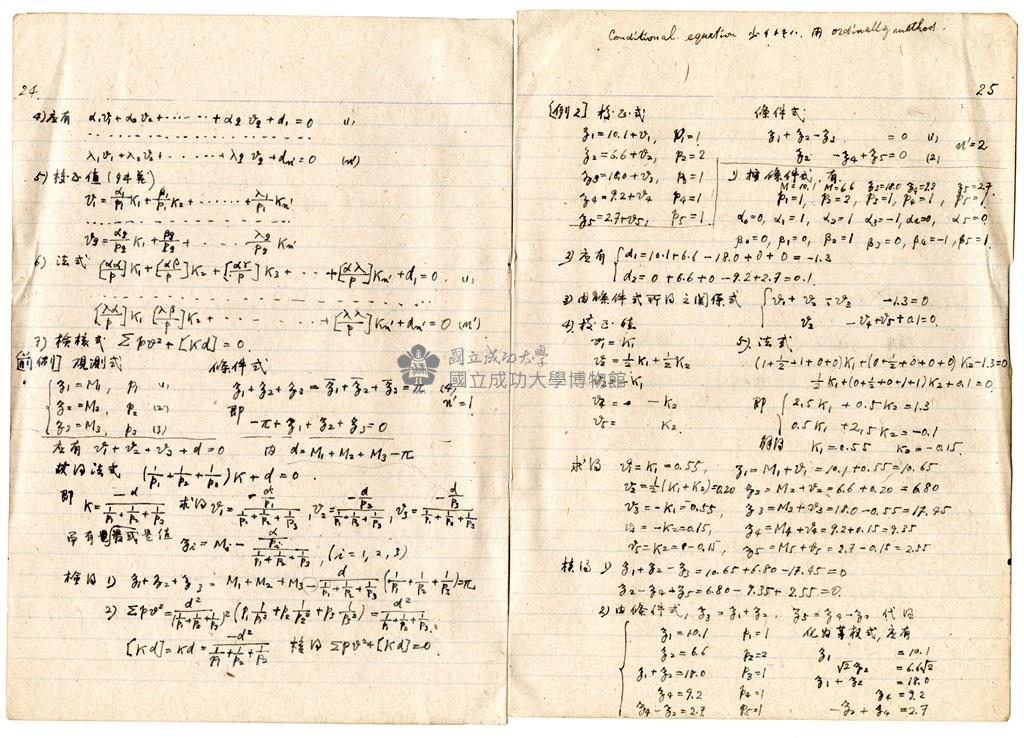 24
4) 应有 α₁v₁+α₂v₂+……+α_q v_q+d₁=0 (1)
λ₁v₁+λ₂v₂+……+λ_q v_q+d_n'=0 (n')
5) 校正值
v₁=α₁/p₁ K₁+β₁/p₁ K₂+……+λ₁/p₁ K_n'
v_q=α_q/p_q K₁+β_q/p_q K₂+……λ_q/p_q K_n'
6) 法式 [αα/p]K₁+[αβ/p]K₂+[αγ/p]K₃+…+[αλ/p]K_n'+d₁=0. (1)
[λα/p]K₁ [λβ/p]K₂+……+[λλ/p]K_n'+d_n'=0 (n')
7) 検核式 Σpv²+[Kd]=0.
[前例] 观測式 條件式
z₁=M₁, p₁ (1) z₁+z₂+z₃=z̄₁+z̄₂+z̄₃=π (4)
z₂=M₂, p₂ (2) 即 n'=1
z₃=M₃, p₃ (3) -π+z₁+z₂+z₃=0
应有 v₁+v₂+v₃+d=0 由 d=M₁+M₂+M₃-π
法式 (1/p₁+1/p₂+1/p₃)K+d=0.
即 K=-d/(1/p₁+1/p₂+1/p₃) 求得 v₁=-(d/p₁)/(1/p₁+1/p₂+1/p₃), v₂=-(d/p₂)/(1/p₁+1/p₂+1/p₃), v₃=-(d/p₃)/(1/p₁+1/p₂+1/p₃)
是值 z_i=M_i-(d/p_i)/(1/p₁+1/p₂+1/p₃), (i=1,2,3)
检得 1) z₁+z₂+z₃=M₁+M₂+M₃-d/(1/p₁+1/p₂+1/p₃)(1/p₁+1/p₂+1/p₃)=π
2) Σpv²=d²/(1/p₁+1/p₂+1/p₃)²(p₁1/p₁²+p₂1/p₂²+p₃1/p₃²)=d²/(1/p₁+1/p₂+1/p₃).
[Kd]=Kd=-d²/(1/p₁+1/p₂+1/p₃) 核得 Σpv²+[Kd]=0.
國立成功大學
國立成功大學博物館
Conditional equation 少 用 ordinally method.
25
[例2] 校正式 條件式
z₁=10.1+v₁, p₁=1 z₁+z₂-z₃=0 (1)
z₂=6.6+v₂, p₂=2 z₂-z₄+z₅=0 (2) n'=2
z₃=18.0+v₃, p₃=1
z₄=9.2+v₄, p₄=1
z₅=2.7+v₅, p₅=1
1) 按條件式,有
M=10.1 M=6.6 z₃=18.0 z₄=9.2 z₅=2.7
p₁=1, p₂=2, p₃=1, p₄=1, p₅=1
α₀=0, α₁=1, α₂=1 α₃=-1, α₄=0, α₅=0
β₀=0, β₁=0, β₂=1 β₃=0, β₄=-1, β₅=1
2) 应有 d₁=10.1+6.6-18.0+0+0=-1.3
d₂=0+6.6+0-9.2+2.7=0.1
3) 由條件式所得之関係式 v₁+v₂-v₃ -1.3=0
v₂ -v₄+v₅+0.1=0.
4) 校正值 5) 法式
v₁=K₁ (1+½+1+0+0)K₁+(0+½+0+0+0)K₂-1.3=0
v₂=½K₁+½K₂ ½K₁+(0+½+0+1+1)K₂+0.1=0
v₃=-K₁
v₄= -K₂ 即 2.5K₁+0.5K₂=1.3
v₅= K₂ 0.5K₁+2.5K₂=-0.1
解得 K₁=0.55 K₂=-0.15.
求得 v₁=K₁=0.55, z₁=M₁+v₁=10.1+0.55=10.65
v₂=½(K₁+K₂)=0.20 z₂=M₂+v₂=6.6+0.20=6.80
v₃=-K₁=-0.55, z₃=M₃+v₃=18.0-0.55=17.45
v₄=-K₂=0.15, z₄=M₄+v₄=9.2+0.15=9.35
v₅=K₂=-0.15, z₅=M₅+v₅=2.7-0.15=2.55
核得 1) z₁+z₂-z₃=10.65+6.80-17.45=0
z₂-z₄+z₅=6.80-9.35+2.55=0.
2) 由條件式, z₃=z₁+z₂, z₅=z₄-z₂ 代得
z₁=10.1 p₁=1 化为等权式,应有
z₂=6.6 p₂=2 z₁ =10.1
z₁+z₂=18.0 p₃=1 √2z₂ =6.6√2
z₄=9.2 p₄=1 z₁+z₂ =18.0
z₄-z₂=2.7 p₅=1 z₄=9.2
-z₂+z₄=2.7